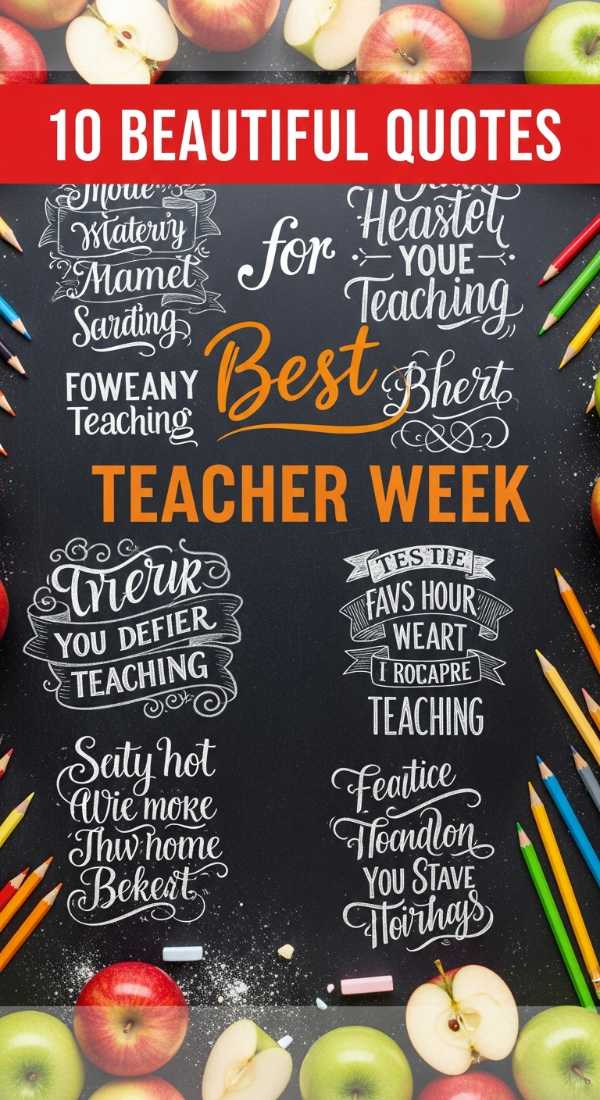 10 BEAUTIFUL QUOTES
Matervy
Mamet
Sarding
for
Heastet
YOUE
Teaching
FOWEANY
Teaching
Best
Bhert
TEACHER WEEK
YOU DEFIER
TEACHING
TESTIE
FAVS HOUR
WEART
I ROCAPRE
TEACHING
Seity hot
Wie more
Thw home
Bekert
Feartice
YOU STAVE